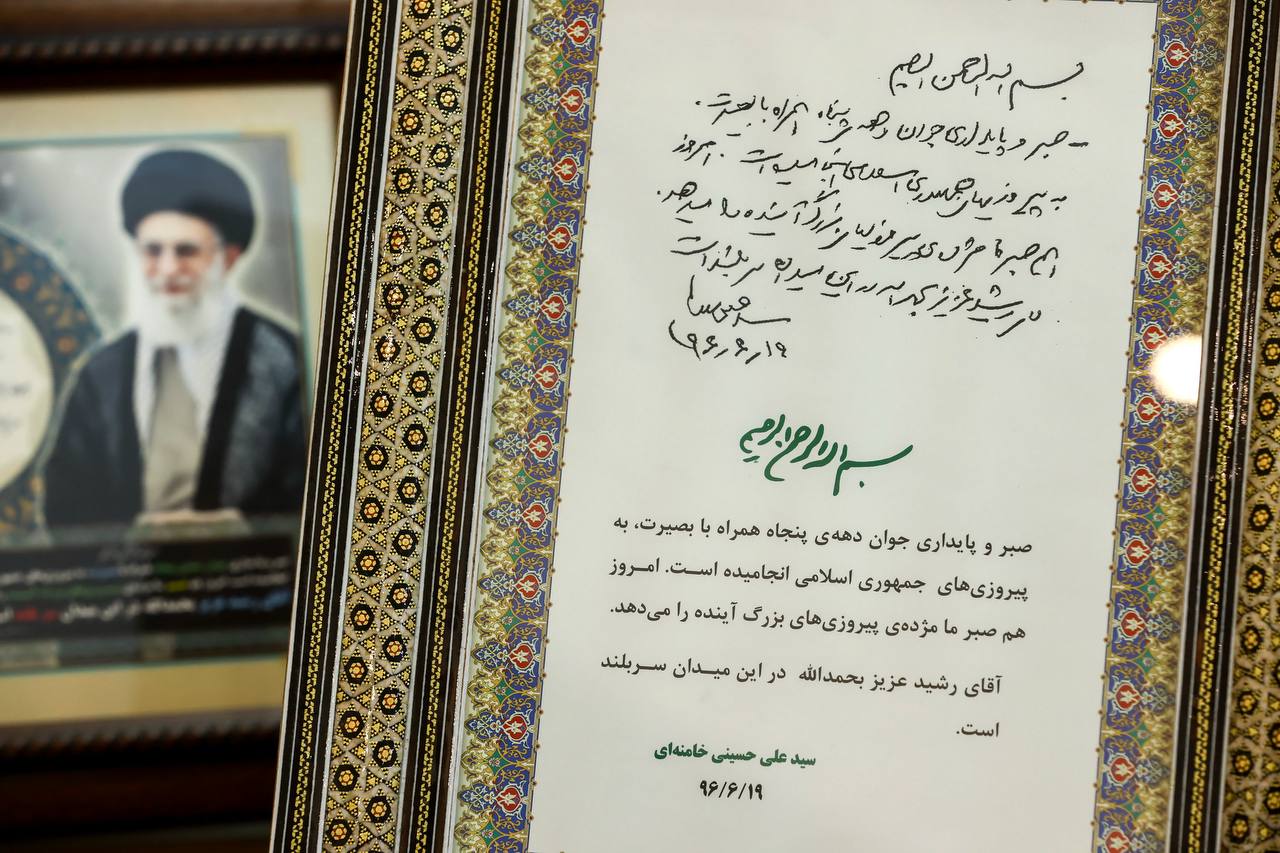 بسم الله الرحمن الرحیم
- صبر و پایداری جوان دهه‌ی پنجاه همراه با بصیرت،
به پیروزیهای جمهوری اسلامی انجامیده است. امروز
هم صبر ما مژده‌ی پیروزیهای بزرگ آینده را میدهد.
آقای رشید عزیز بحمدالله در این میدان سربلند است
سید علی خامنه‌ای
۹۶/۶/۱۹
بسم الله الرحمن الرحیم
صبر و پایداری جوان دهه‌ی پنجاه همراه با بصیرت، به
پیروزی‌های جمهوری اسلامی انجامیده است. امـروز
هم صبر ما مژده‌ی پیروزی‌های بزرگ آینده را می‌دهد.
آقای رشید عزیز بحمدالله در این میـدان سـربلند
است.
سید علی حسینی خامنه‌ای
۹۶/۶/۱۹